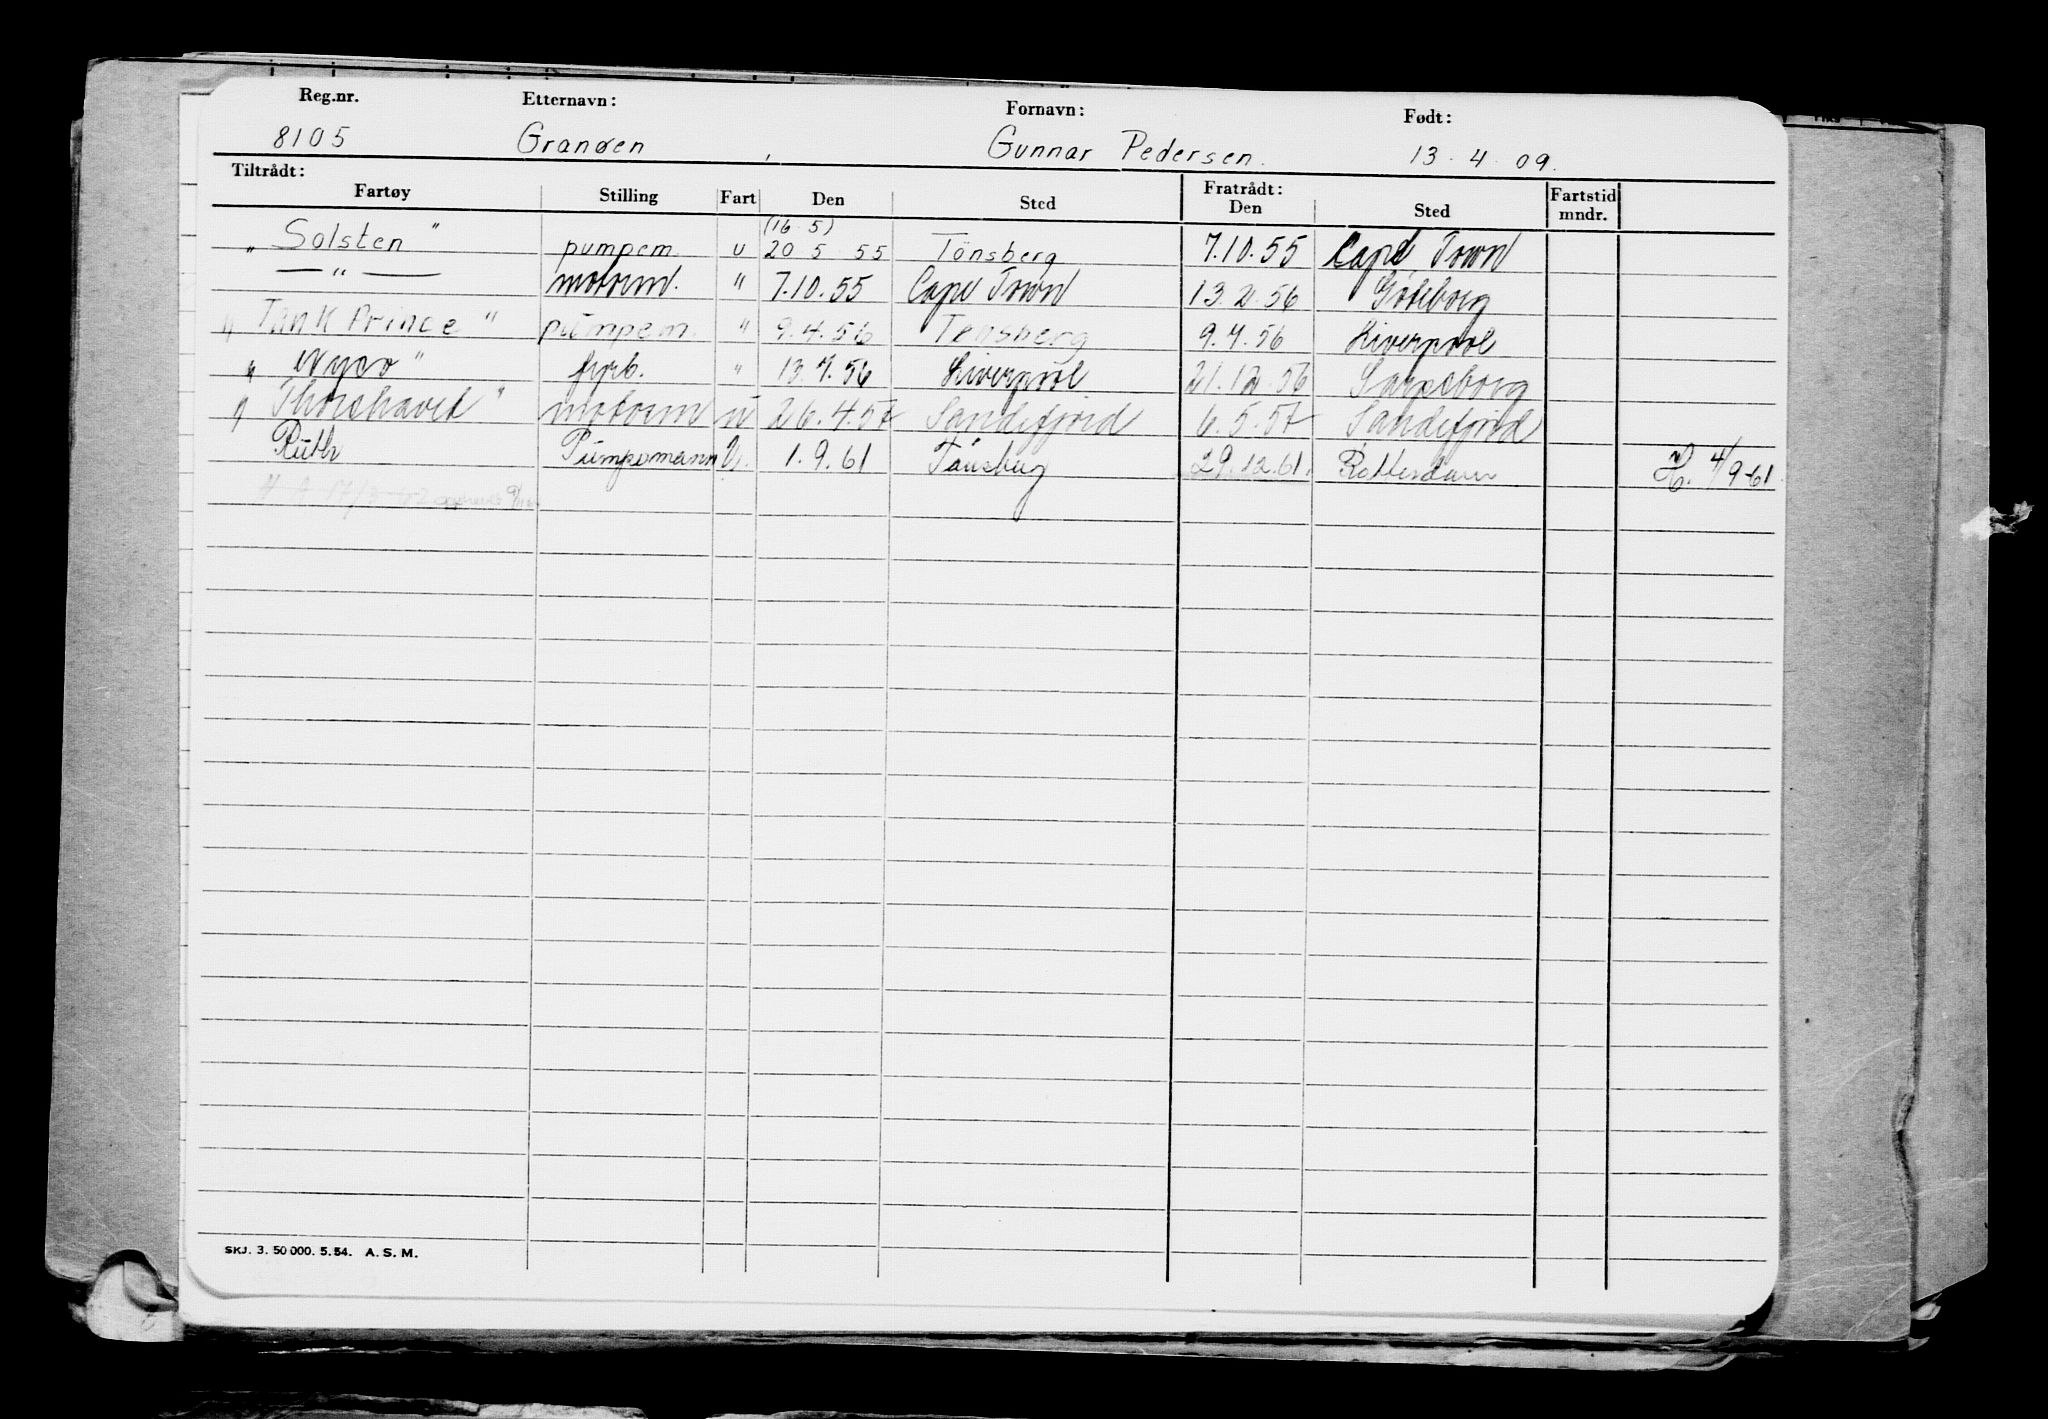 Reg.nr. Etternavn: Fornavn: Født:
8105 Granøen, Gunnar Pedersen. 13.4.09.
Tiltrådt: Fratrådt:
Fartøy Stilling Fart Den Sted Den Sted Fartstid mndr.
(16.5)
"Solsten" pumpem. u 20.5.55 Tönsberg 7.10.55 Cape Town
— " — motorm. " 7.10.55 Cape Town 13.2.56 Göteborg
"Tank Prince" pumpem. " 9.4.56 Tønsberg 9.7.56 Liverpool
"Nyco" fyrb. " 13.7.56 Liverpool 21.12.56 Sarpsborg
"Thorshavet" motorm u 26.4.57 Sandefjord 6.5.57 Sandefjord
Ruth Pumpemann U. 1.9.61 Tønsberg 29.12.61. Rotterdam H. 4/9-61.
SKJ. 3. 50 000. 5.54. A. S. M.